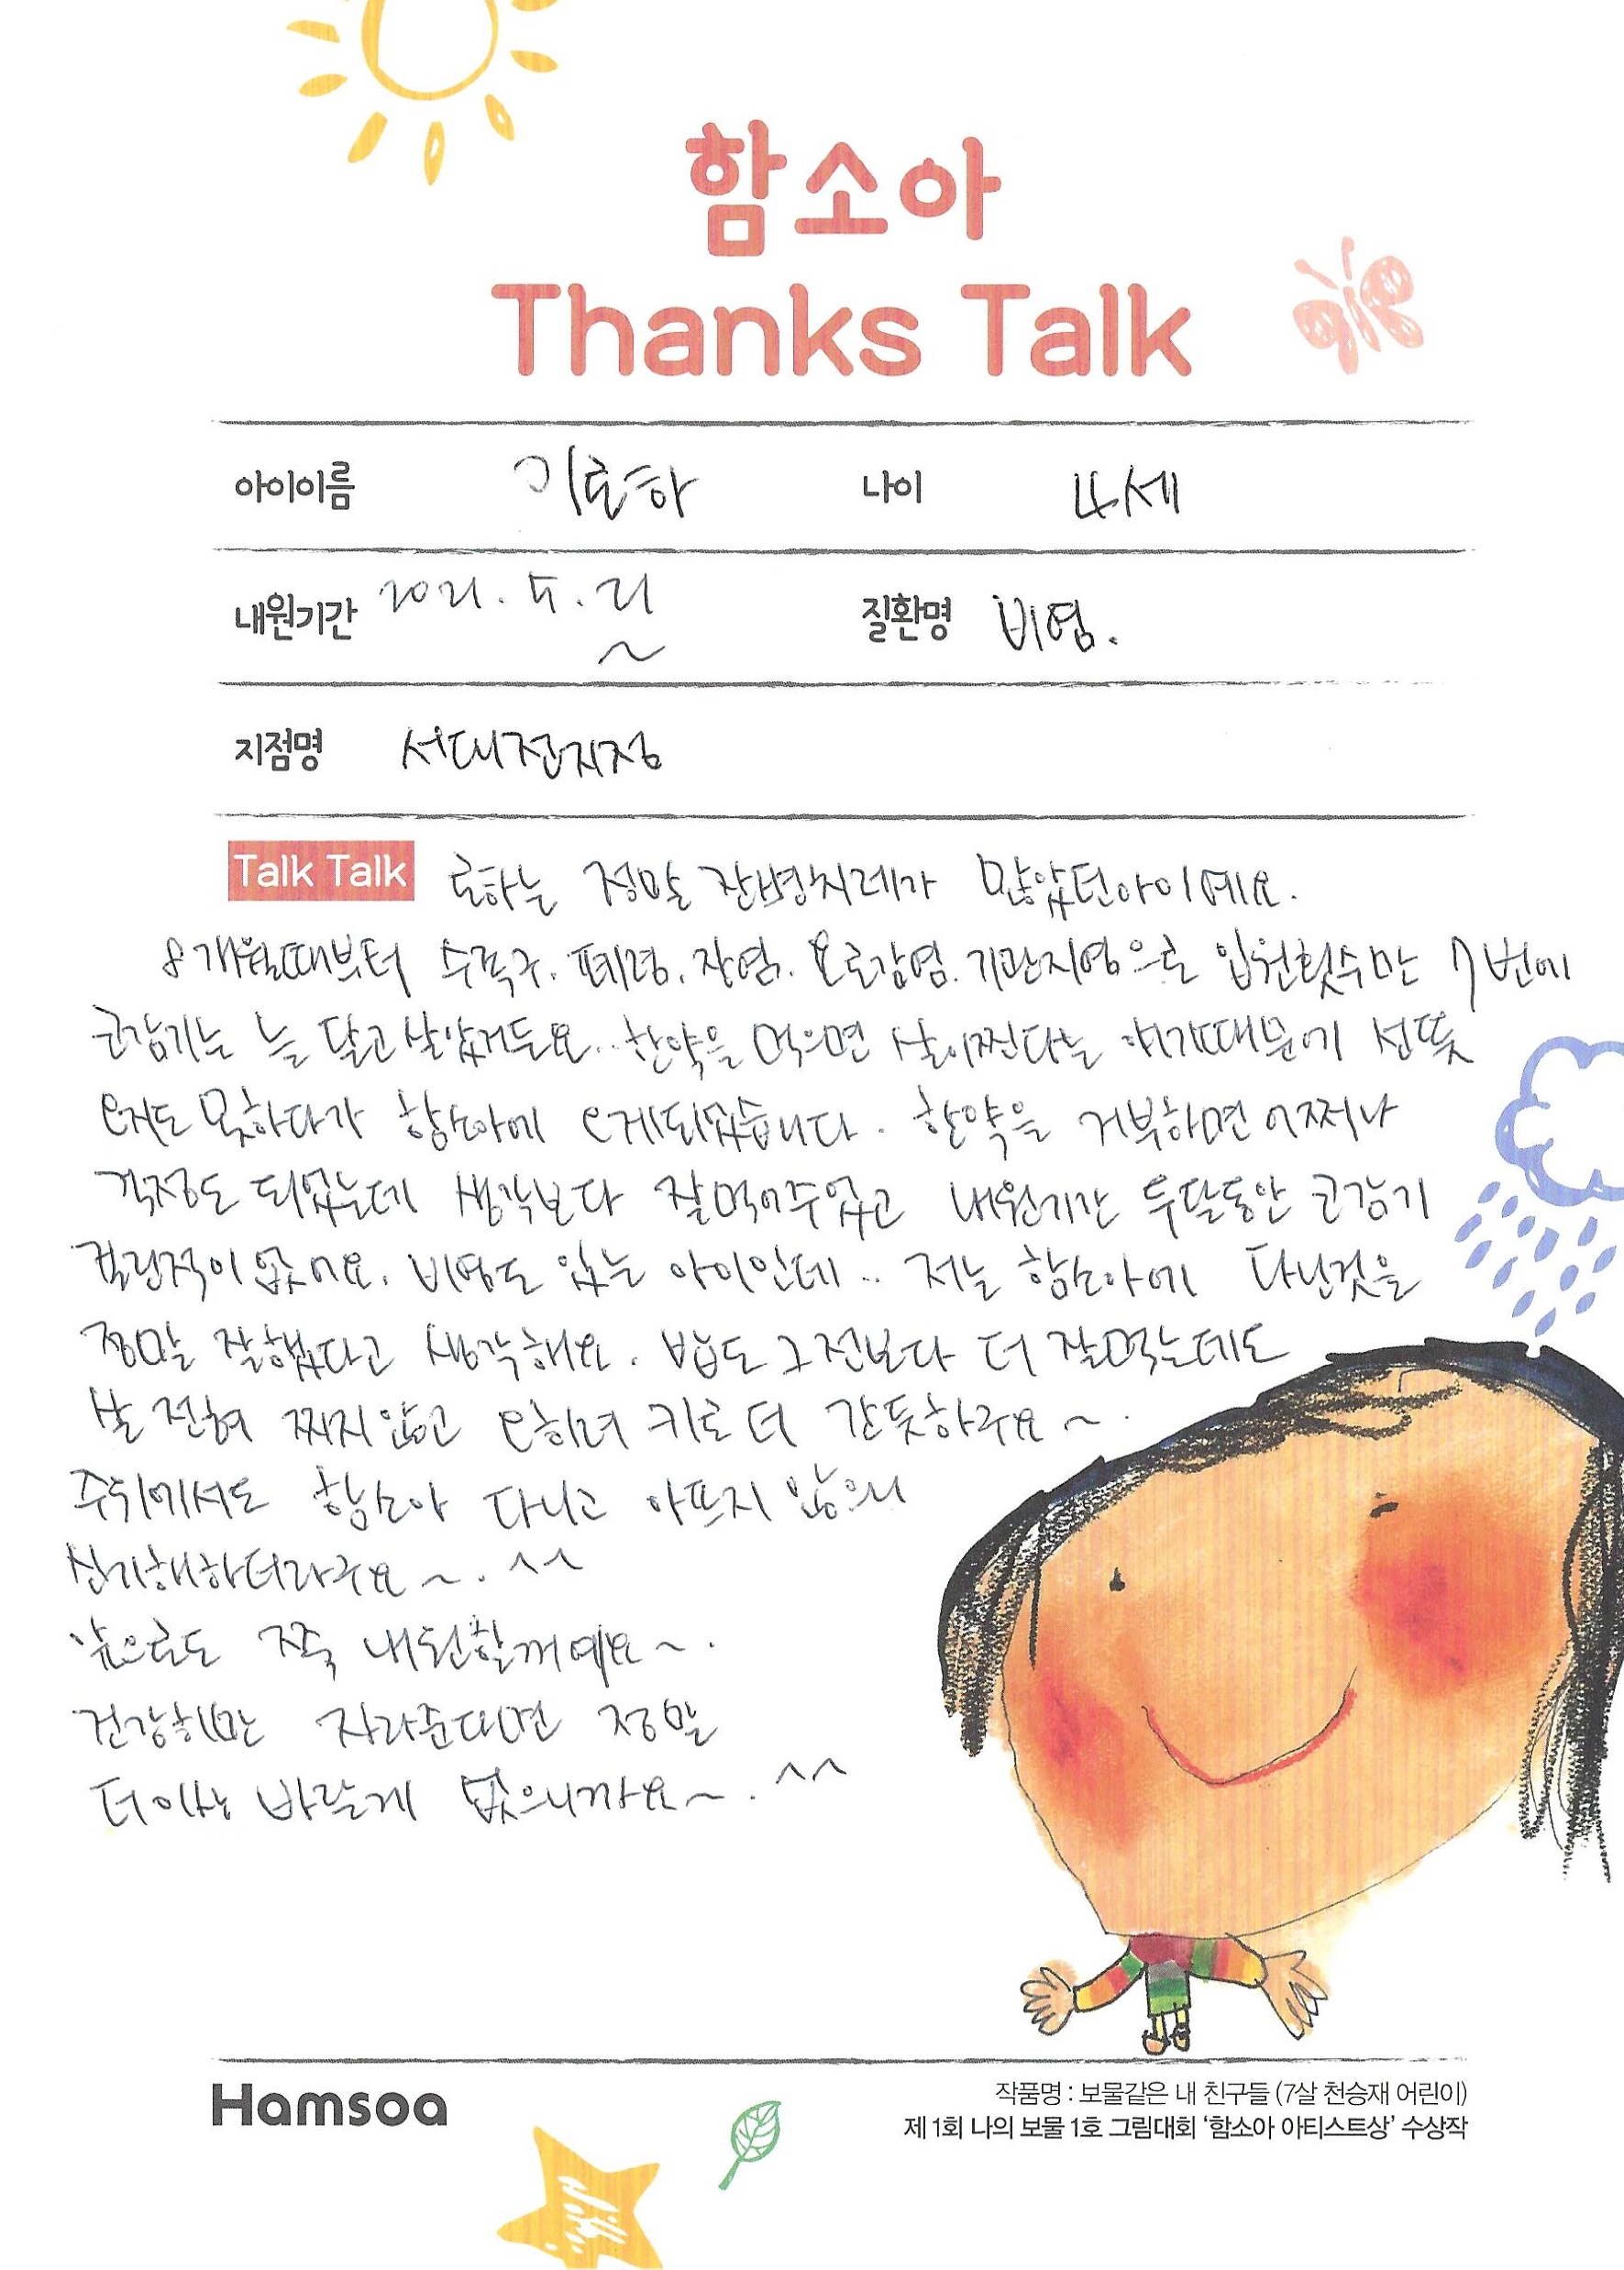 함소아
Thanks Talk
아이이름 기로하 나이 4세
내원기간 2021. 5. 21 ~ 질환명 비염.
지점명 서대전지점
Talk Talk 로하는 정말 잔병치레가 많았던아이예요.
8개월때부터 수족구. 폐렴. 장염. 요로감염. 기관지염으로 입원횟수만 7번에
코감기는 늘 달고살았거든요.. 한약을 먹으면 살이찐다는 얘기때문에 선뜻
오지도 못하다가 함소아에 오게되었습니다. 한약을 거부하면 어쩌나
걱정도 되었는데 생각보다 잘먹어주었고 내원기간 두달동안 코감기
걸린적이 없어요. 비염도 있는 아이인데.. 저는 함소아에 다닌것을
정말 잘했다고 생각해요. 밥도 그전보다 더 잘먹는데도
살 전혀 찌지않고 오히려 키로 더 간듯하구요~.
주위에서도 함소아 다니고 아프지 않으니
신기해하더라구요~. ^^
앞으로도 쭉 내원할꺼예요~.
건강히만 자라준다면 정말
더이상 바랄게 없으니까요~. ^^
Hamsoa
작품명 : 보물같은 내 친구들 (7살 천승재 어린이)
제 1회 나의 보물 1호 그림대회 '함소아 아티스트상' 수상작